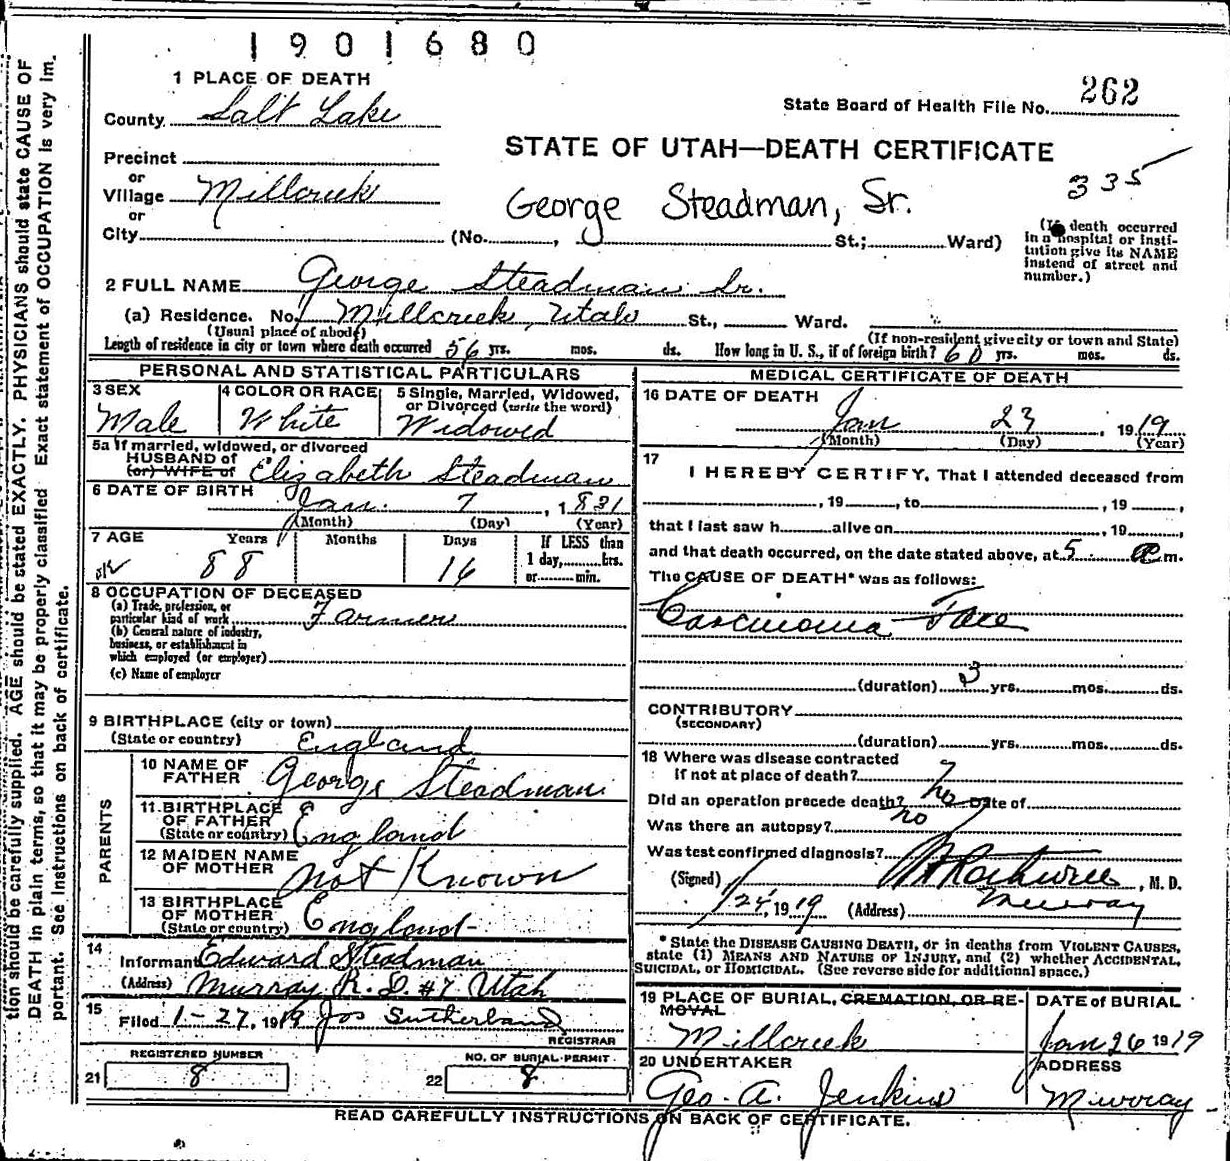 1901680
1 PLACE OF DEATH
State Board of Health File No. 262
County Salt Lake
STATE OF UTAH—DEATH CERTIFICATE
335
Precinct
or
Village Millcreek
or
George Steadman, Sr.
City (No. , St.; Ward)
(If death occurred
in a hospital or insti-
tution give its NAME
instead of street and
number.)
2 FULL NAME George Steadman Sr.
(a) Residence. No. Millcreek, Utah St., Ward.
(Usual place of abode)
(If non-resident give city or town and State)
Length of residence in city or town where death occurred 56 yrs. mos. ds. How long in U. S., if of foreign birth? 60 yrs. mos. ds.
PERSONAL AND STATISTICAL PARTICULARS
3 SEX
Male
4 COLOR OR RACE
White
5 Single, Married, Widowed,
or Divorced (write the word)
Widowed
5a If married, widowed, or divorced
HUSBAND of
(or) WIFE of Elizabeth Steadman
6 DATE OF BIRTH
Jan. 7, 1831
(Month) (Day) (Year)
7 AGE Years Months Days If LESS than
1 day, hrs.
or min.
88 16
8 OCCUPATION OF DECEASED
(a) Trade, profession, or
particular kind of work Farmer
(b) General nature of industry,
business, or establishment in
which employed (or employer)
(c) Name of employer
9 BIRTHPLACE (city or town)
(State or country) England
PARENTS
10 NAME OF
FATHER George Steadman
11 BIRTHPLACE
OF FATHER
(State or country) England
12 MAIDEN NAME
OF MOTHER Not Known
13 BIRTHPLACE
OF MOTHER
(State or country) England
14
Informant Edward Steadman
(Address) Murray R. D. #7 Utah
15
Filed 1-27, 1919 Jos Sutherland
REGISTRAR
REGISTERED NUMBER
21 8
NO. OF BURIAL PERMIT
22 8
MEDICAL CERTIFICATE OF DEATH
16 DATE OF DEATH
Jan 23, 1919
(Month) (Day) (Year)
17
I HEREBY CERTIFY, That I attended deceased from
, 19 , to , 19 ,
that I last saw h alive on , 19 ,
and that death occurred, on the date stated above, at 5 m.
The CAUSE OF DEATH* was as follows:
Carcinoma Face
(duration) 3 yrs. mos. ds.
CONTRIBUTORY
(SECONDARY)
(duration) yrs. mos. ds.
18 Where was disease contracted
if not at place of death? ?
Did an operation precede death? no Date of
Was there an autopsy? no
Was test confirmed diagnosis?
(Signed) , M. D.
1/24, 1919 (Address) Murray
* State the DISEASE CAUSING DEATH, or in deaths from VIOLENT CAUSES,
state (1) MEANS AND NATURE OF INJURY, and (2) whether ACCIDENTAL,
SUICIDAL, or HOMICIDAL. (See reverse side for additional space.)
19 PLACE OF BURIAL, CREMATION, OR RE-
MOVAL
Millcreek
DATE of BURIAL
Jan 26 1919
20 UNDERTAKER
Geo. A. Jenkins
ADDRESS
Murray
READ CAREFULLY INSTRUCTIONS ON BACK OF CERTIFICATE.
tion should be carefully supplied. AGE should be stated EXACTLY. PHYSICIANS should state CAUSE OF
DEATH in plain terms, so that it may be properly classified Exact statement of OCCUPATION is very im.
portant. See instructions on back of certificate.